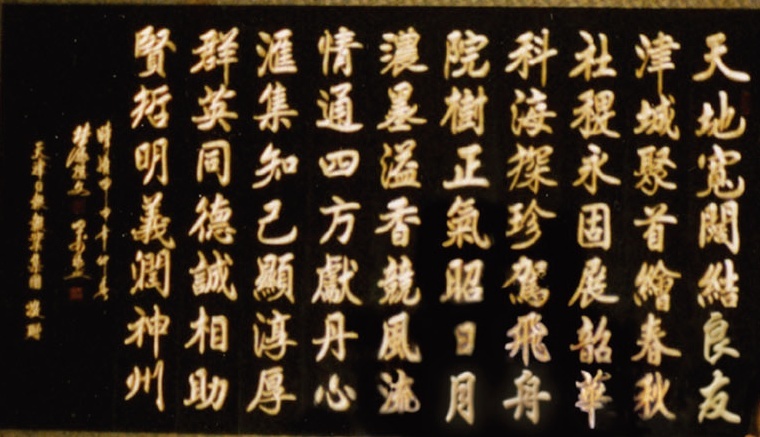 天地寬闊結良友
津城聚首繪春秋
社稷永固展韶華
科海探珍駕飛舟
院樹正氣昭日月
濃墨溢香競風流
情通四方獻丹心
滙集知己顯淳厚
群英同德誠相助
賢哲明義潤神州
天津日報報業集團